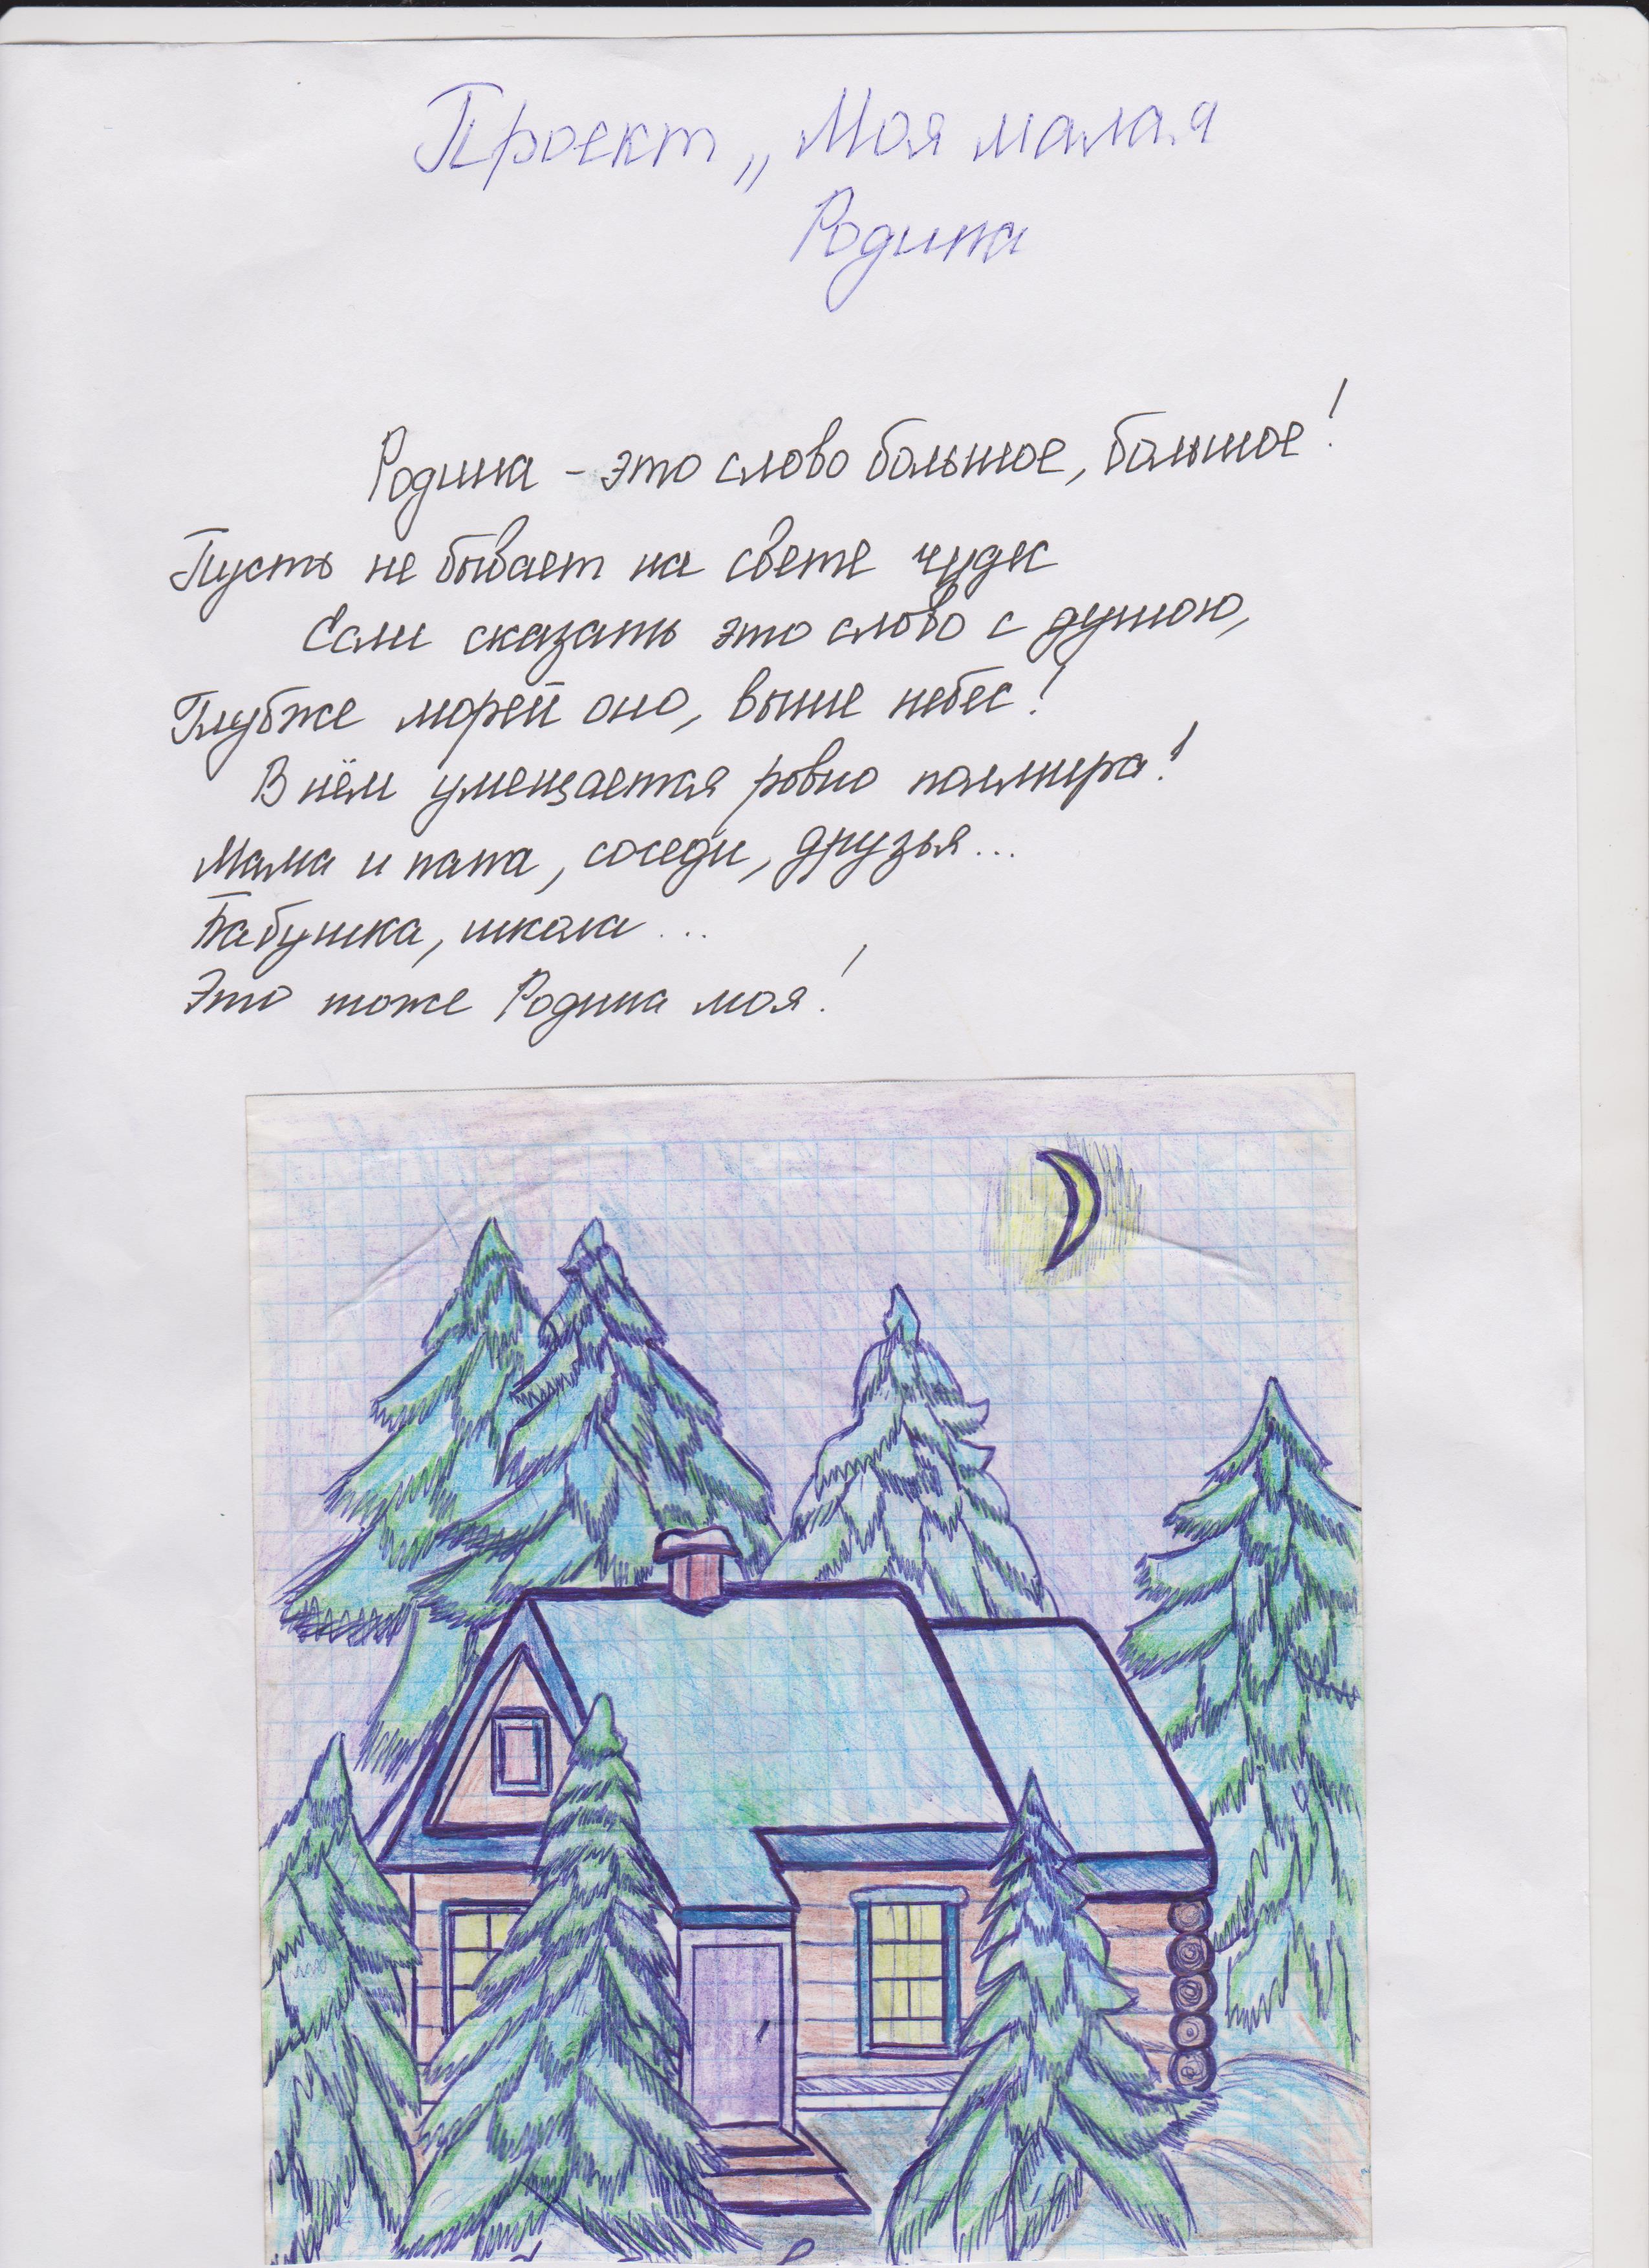 Проект „Моя малая
Родина
Родина – это слово большое, большое!
Пусть не бывает на свете чудес
Если сказать это слово с душою,
Глубже морей оно, выше небес!
В нём умещается ровно полмира!
Мама и папа, соседи, друзья...
Бабушка, школа ...
Это тоже Родина моя!